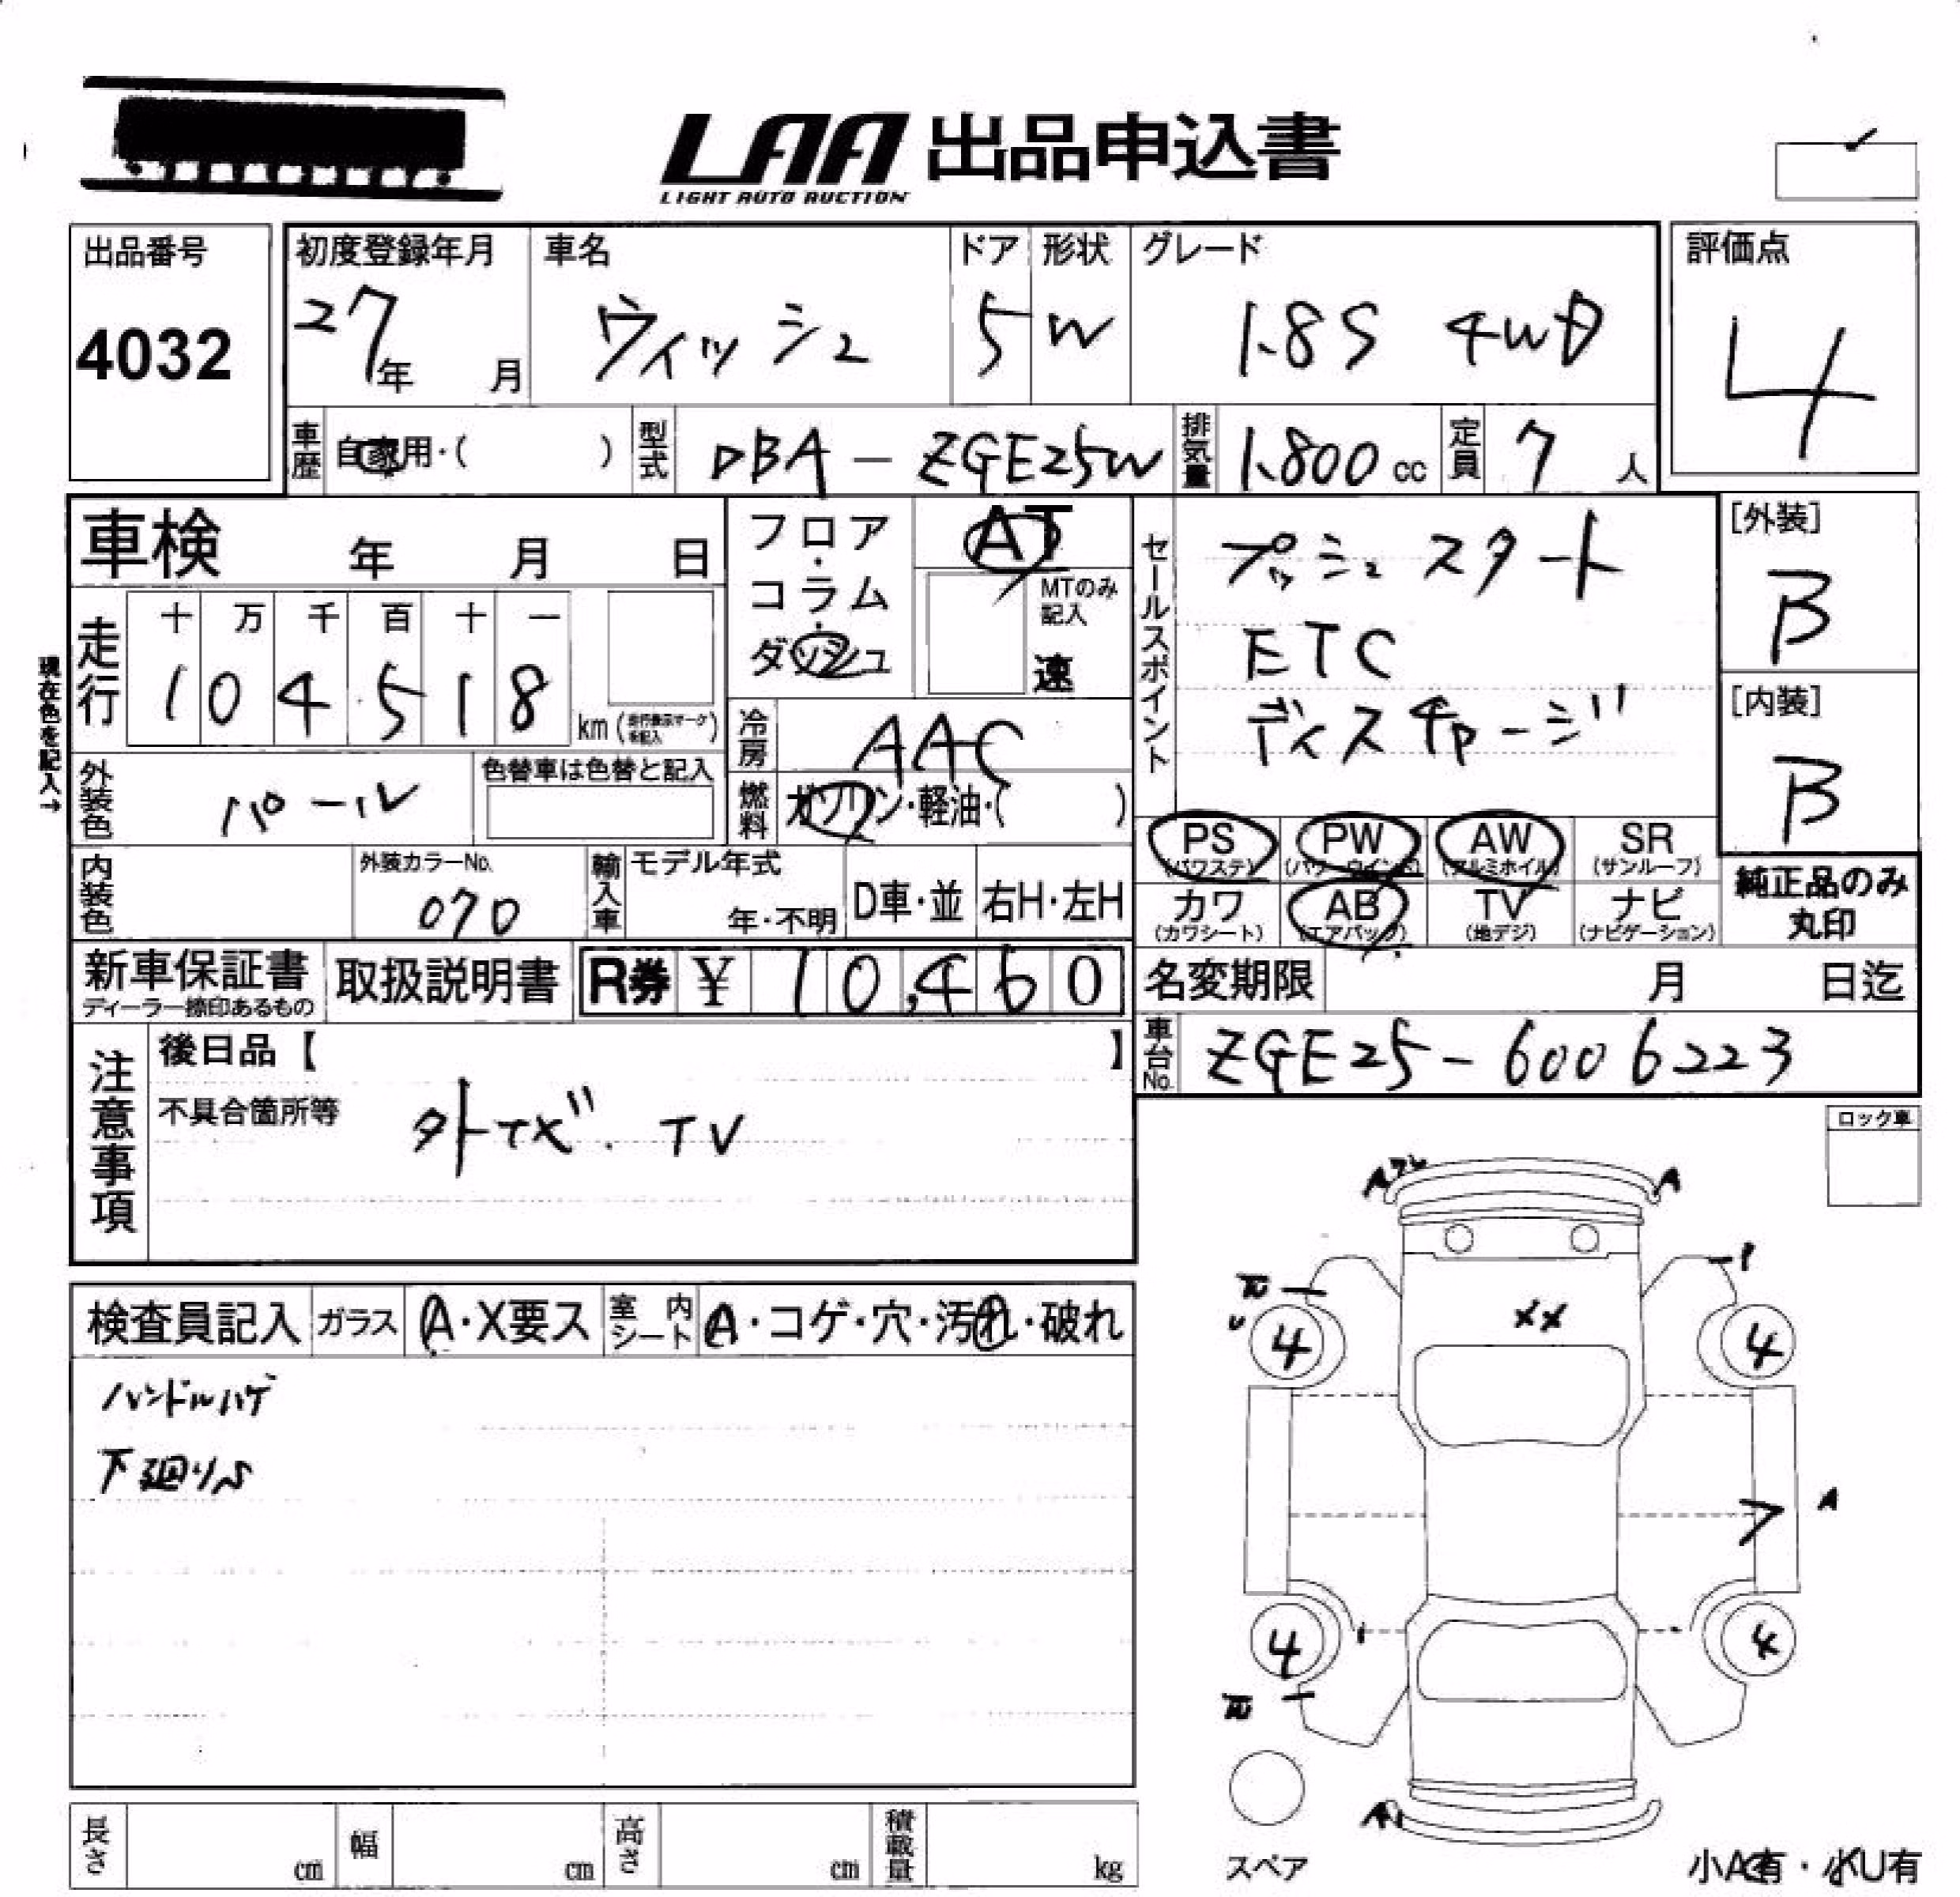 LAA 出品申込書
LIGHT AUTO AUCTION
出品番号 初度登録年月 車名 ドア 形状 グレード 評価点
4032 27年 月 ウィッシュ 5 W 1.8S 4WD 4
車歴 自家用・( ) 型式 DBA-ZGE25W 排気量 1.800 cc 定員 7 人
車検 年 月 日
フロア・コラム・ダッシュ
AT
MTのみ記入
速
現在色を記入→
走行 十 万 千 百 十 一
1 0 4 5 1 8 km
冷房 AAC
燃料 ガソリン・軽油・( )
セールスポイント
プッシュスタート
ETC
ディスチャージ
[外装]
B
[内装]
B
外装色 パール 色替車は色替と記入
PS (パワステ) PW (パワーウインド) AW (アルミホイル) SR (サンルーフ)
カワ (カワシート) AB (エアバッグ) TV (地デジ) ナビ (ナビゲーション)
純正品のみ
丸印
内装色 外装カラーNo. 070 輸入車 モデル年式 年・不明 D車・並 右H・左H
新車保証書 取扱説明書 R券 ¥ 10,460
ディーラー捺印あるもの
名変期限 月 日迄
車台No. ZGE25-6006223
注意事項
後日品【 】
不具合箇所等 外ナビ. TV
ロック車
検査員記入 ガラス A・X要ス 室内シート A・コゲ・穴・汚れ・破れ
ハンドルハゲ
下廻りS
A A
XX
U
4 4
A
4 4
スペア
長さ cm 幅 cm 高さ cm 積載量 kg
小A有・小U有